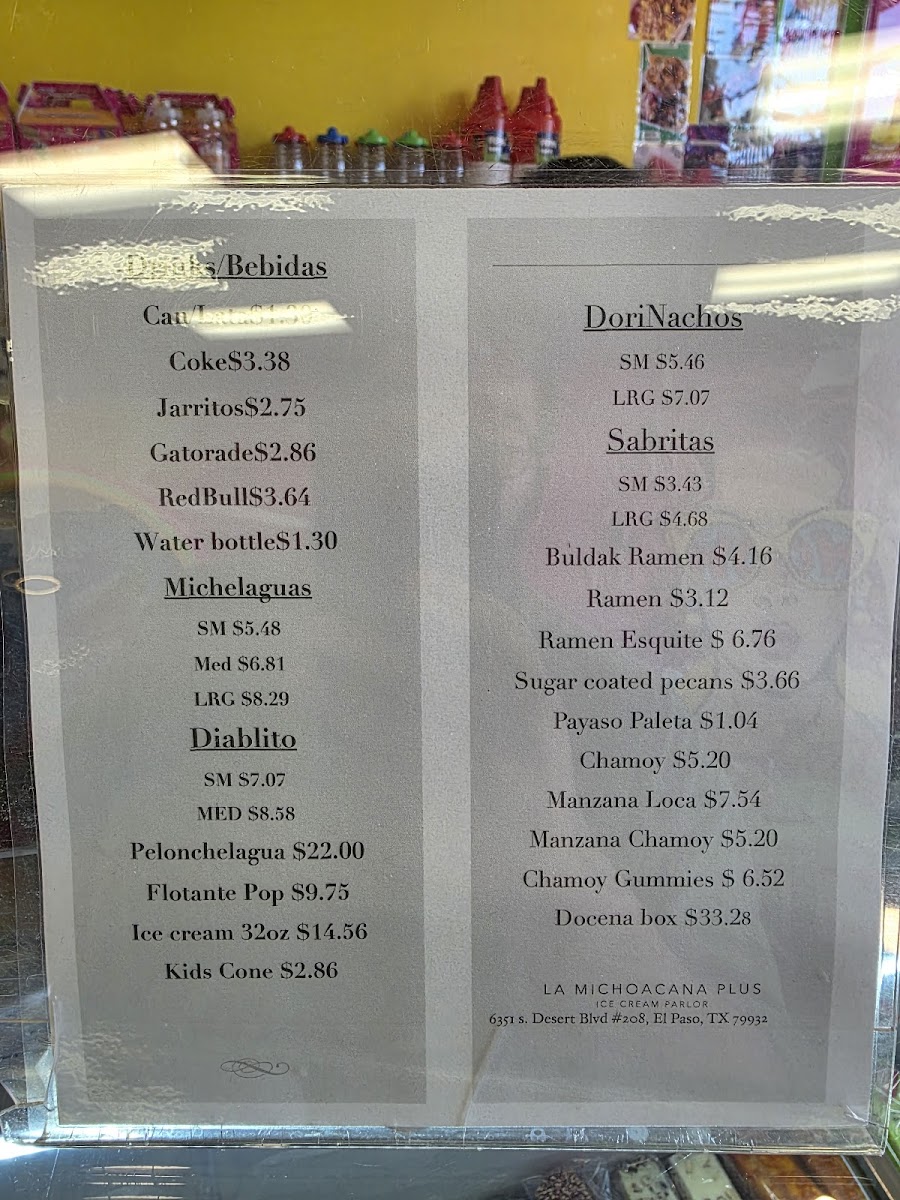 Drinks/Bebidas
Can/Lata$1.30
Coke$3.38
Jarritos$2.75
Gatorade$2.86
RedBull$3.64
Water bottle$1.30
Michelaguas
SM $5.48
Med $6.81
LRG $8.29
Diablito
SM $7.07
MED $8.58
Pelonchelagua $22.00
Flotante Pop $9.75
Ice cream 32oz $14.56
Kids Cone $2.86
DoriNachos
SM $5.46
LRG $7.07
Sabritas
SM $3.43
LRG $4.68
Buldak Ramen $4.16
Ramen $3.12
Ramen Esquite $ 6.76
Sugar coated pecans $3.66
Payaso Paleta $1.04
Chamoy $5.20
Manzana Loca $7.54
Manzana Chamoy $5.20
Chamoy Gummies $ 6.52
Docena box $33.28
LA MICHOACANA PLUS
ICE CREAM PARLOR
6351 s. Desert Blvd #208, El Paso, TX 79932